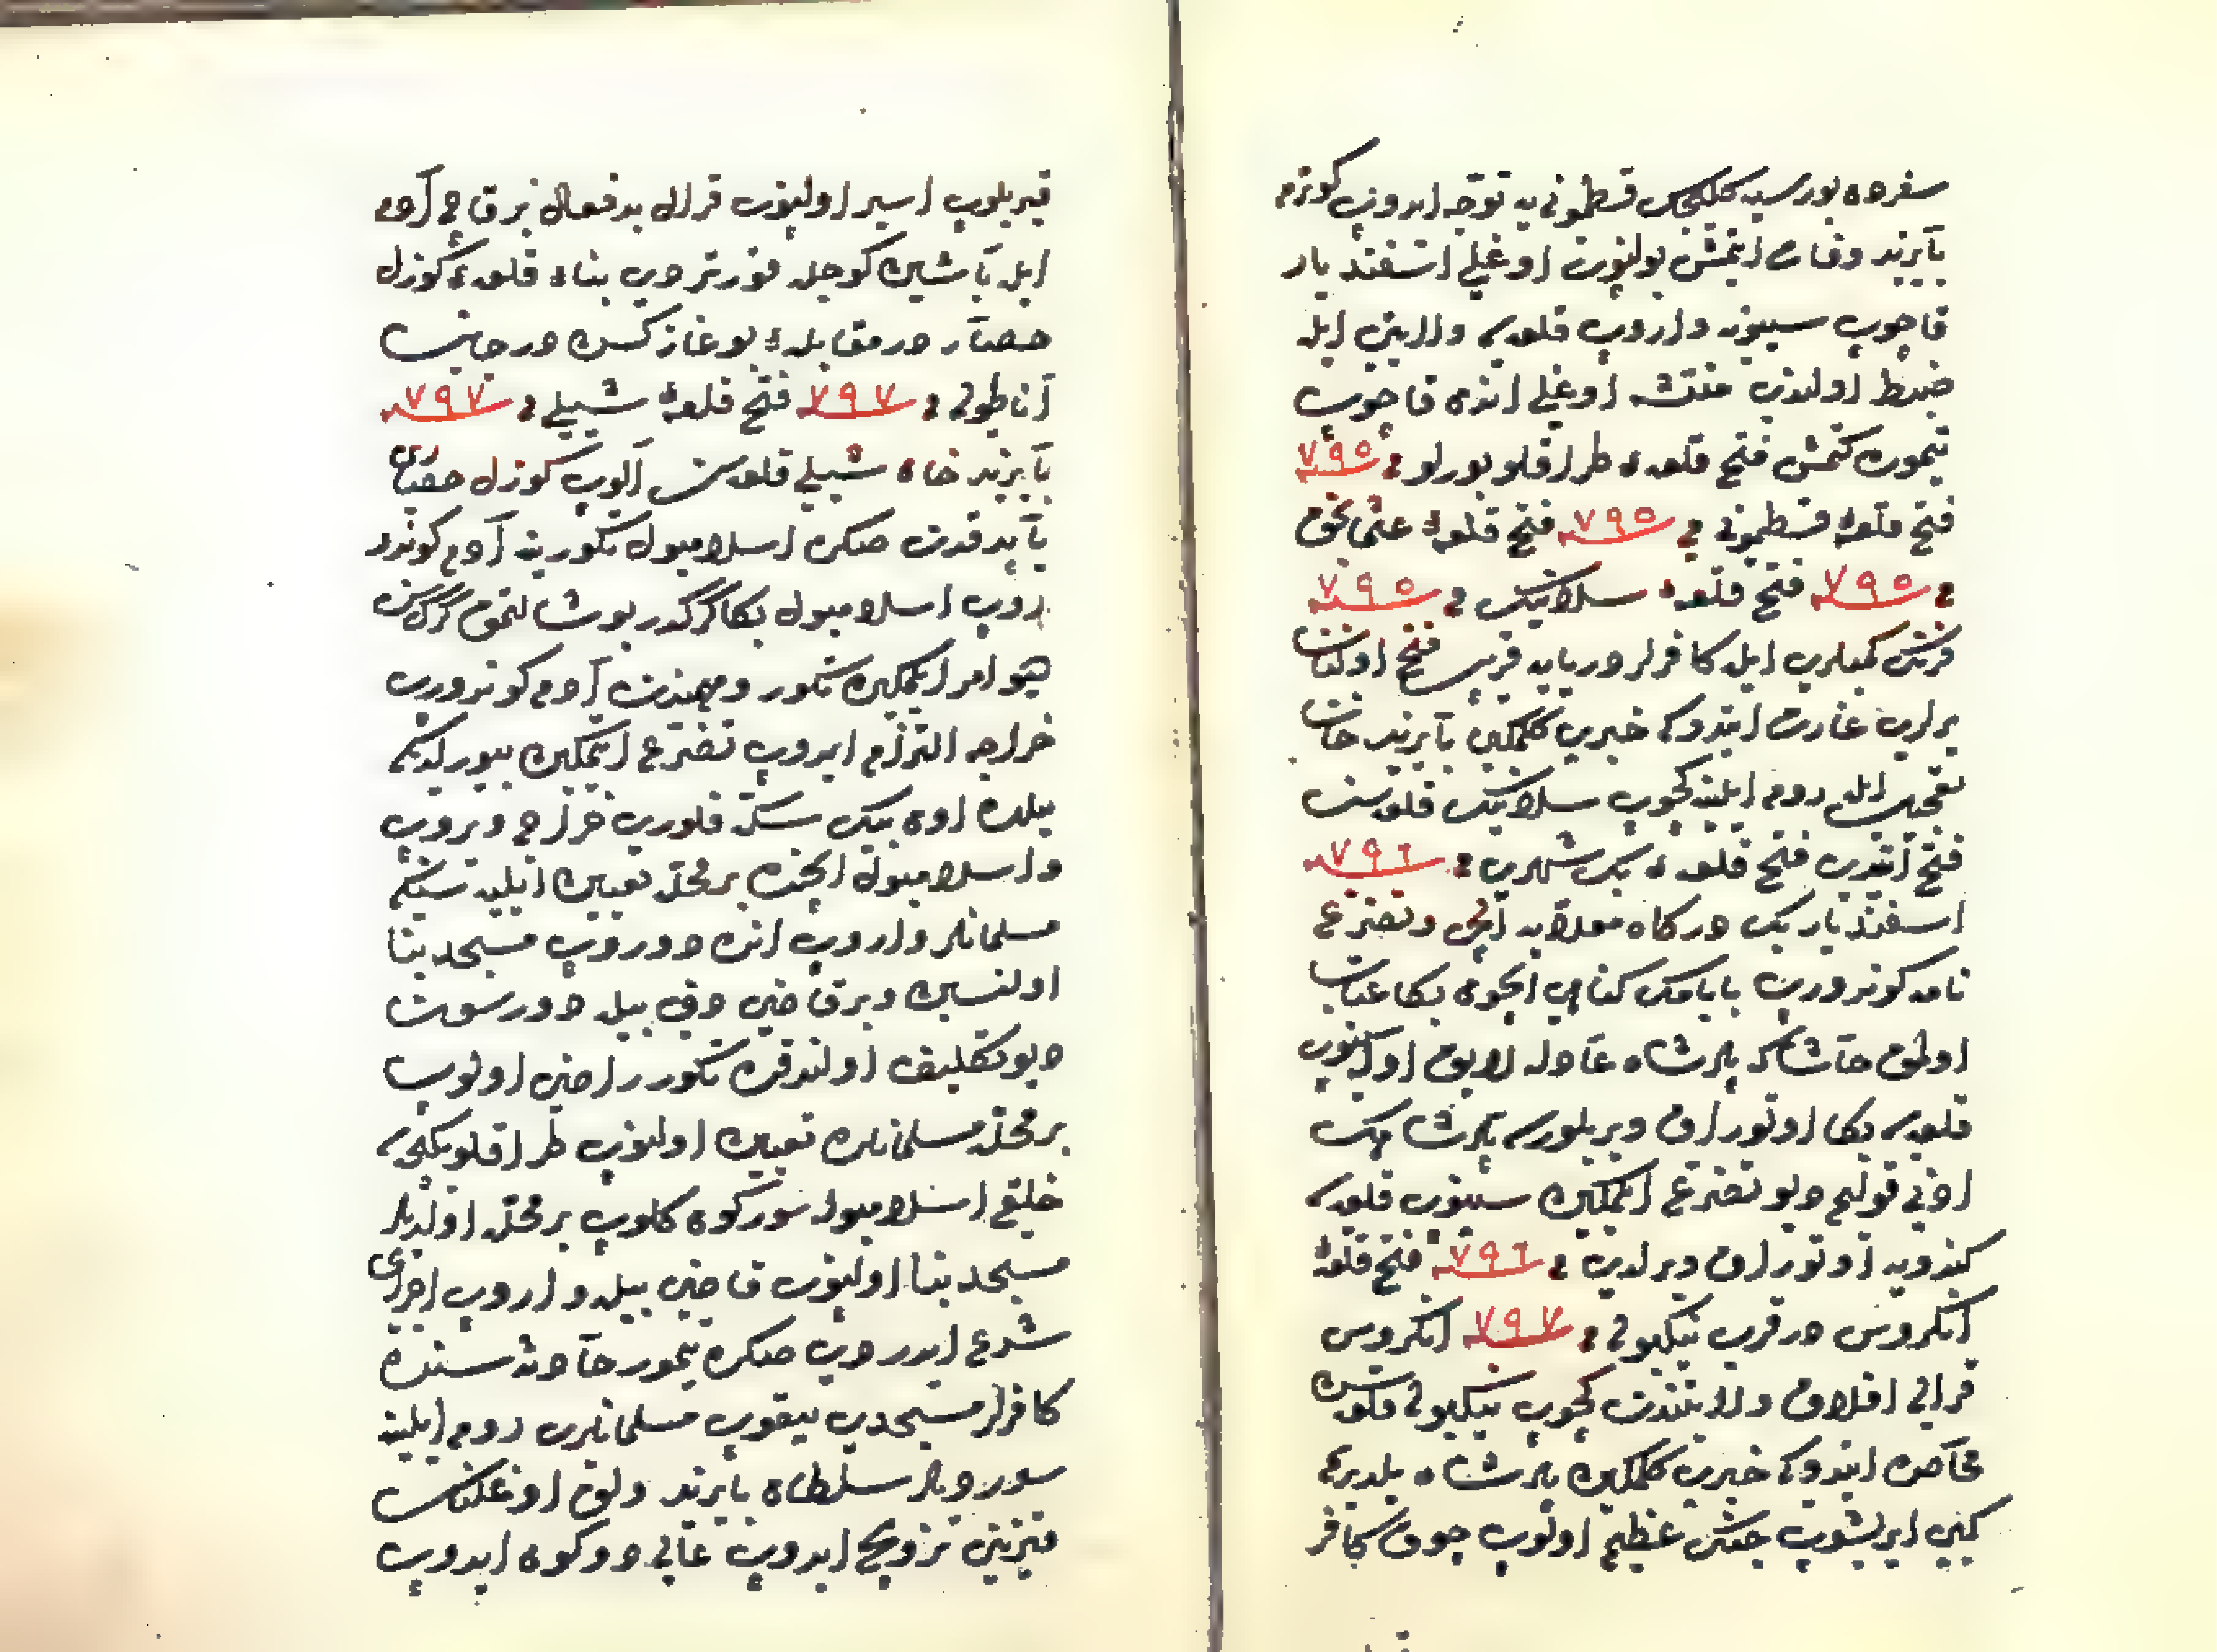 سفردن بورسیه کلیجك قسطمونی یه توجه ایدوب کوترم
بایزید وفات ایتمش بولنوب اوغلی اسفندیار
قاچوب سینوبه واروب قلعه سی ولایتی ایله
ضبط اولنوب منتشه اوغلی انده قاچوب
تیموره کتمش فتح قلعهء طراقلو بورلو فی ٧٩٥
فتح قلعهٔ قسطمونی فی ٧٩٥ فتح قلعهٔ عثمانجق
فی ٧٩٥ فتح قلعهٔ سلانیك فی ٧٩٥
فرنك کمیلری ایله کافرلر دریایه قریب فتح اولنان
یرلری غارت ایتدوکی خبری کلمکین بایزید خان
تعجیل ایله روم ایلینه کچوب سلانیك قلعه سن
فتح ایتدی فتح قلعهء یکی شهری فی ٧٩٦
اسفندیار بك درکاه معلایه ایلچی و تضرع
نامه کوندروب بابامك کناهی ایچون بکا عتاب
اولمق حاشا که پادشاه عادله لایق اولا سینوب
قلعه سی بکا اوتوراق ویریلورسه پادشاهك
ادنی قولیم دیو تضرع ایتمکین سینوب قلعه سی
کندویه اوتوراق ویرلدی فی ٧٩٦ فتح قلعهٔ
انکروس در قرب نیکبولی فی ٧٩٧ انکروس
قرالی افلاق ولایتندن کچوب نیکبولی قلعه سن
محاصره ایتدوکی خبری کلمکین پادشاه یلدیرم
کبی ایریشوب جنك عظیم اولوب چوق کافر
قیریلوب اسیر اولنوب قرال بدفعال بر قاچ آدم
ایله باشین کوجله قورتردی بناء قلعهء کوزل
حصار در مقابلهء بوغاز کسن در جانب
آناطولی فی ٧٩٧ فتح قلعهٔ شیلی فی ٧٩٧
بایزید خان شیلی قلعه سن آلوب کوزل حصاری
یاپدقدن صکره اسلامبول تکورینه آدم کوندر
دی اسلامبول بکا کرکدر بوشالتمق کرك سن
دیو امر ایتمکین تکور ومهمندن آدم کوندروب
خراجه التزام ایدوب تضرع ایتمکین بیورلدیکم
یلده اون بیك سکه فلوری خراج ویروب
واسلامبول ایچنده بر محله تعیین ایلیه سنکم
مسلمانلر واروب انده دوروب مسجد بنا
اولنسین وبر قاضی دخی بیله دورسون
دیو تکلیف اولندقده تکور راضی اولوب
بر محله مسلمانلره تعیین اولنوب طراقلو یکیجه سی
خلقی اسلامبوله سورکون کلوب بر محله اولدیلر
مسجد بنا اولنوب قاضی بیله واروب اجرای
شرع ایدردی صکره تیمور حادثه سنده
کافرلر مسجدی ییقوب مسلمانلری روم ایلینه
سوردیلر سلطان بایزید ولق اوغلینك
قیزینی تزویج ایدوب عالی دوکون ایدوب